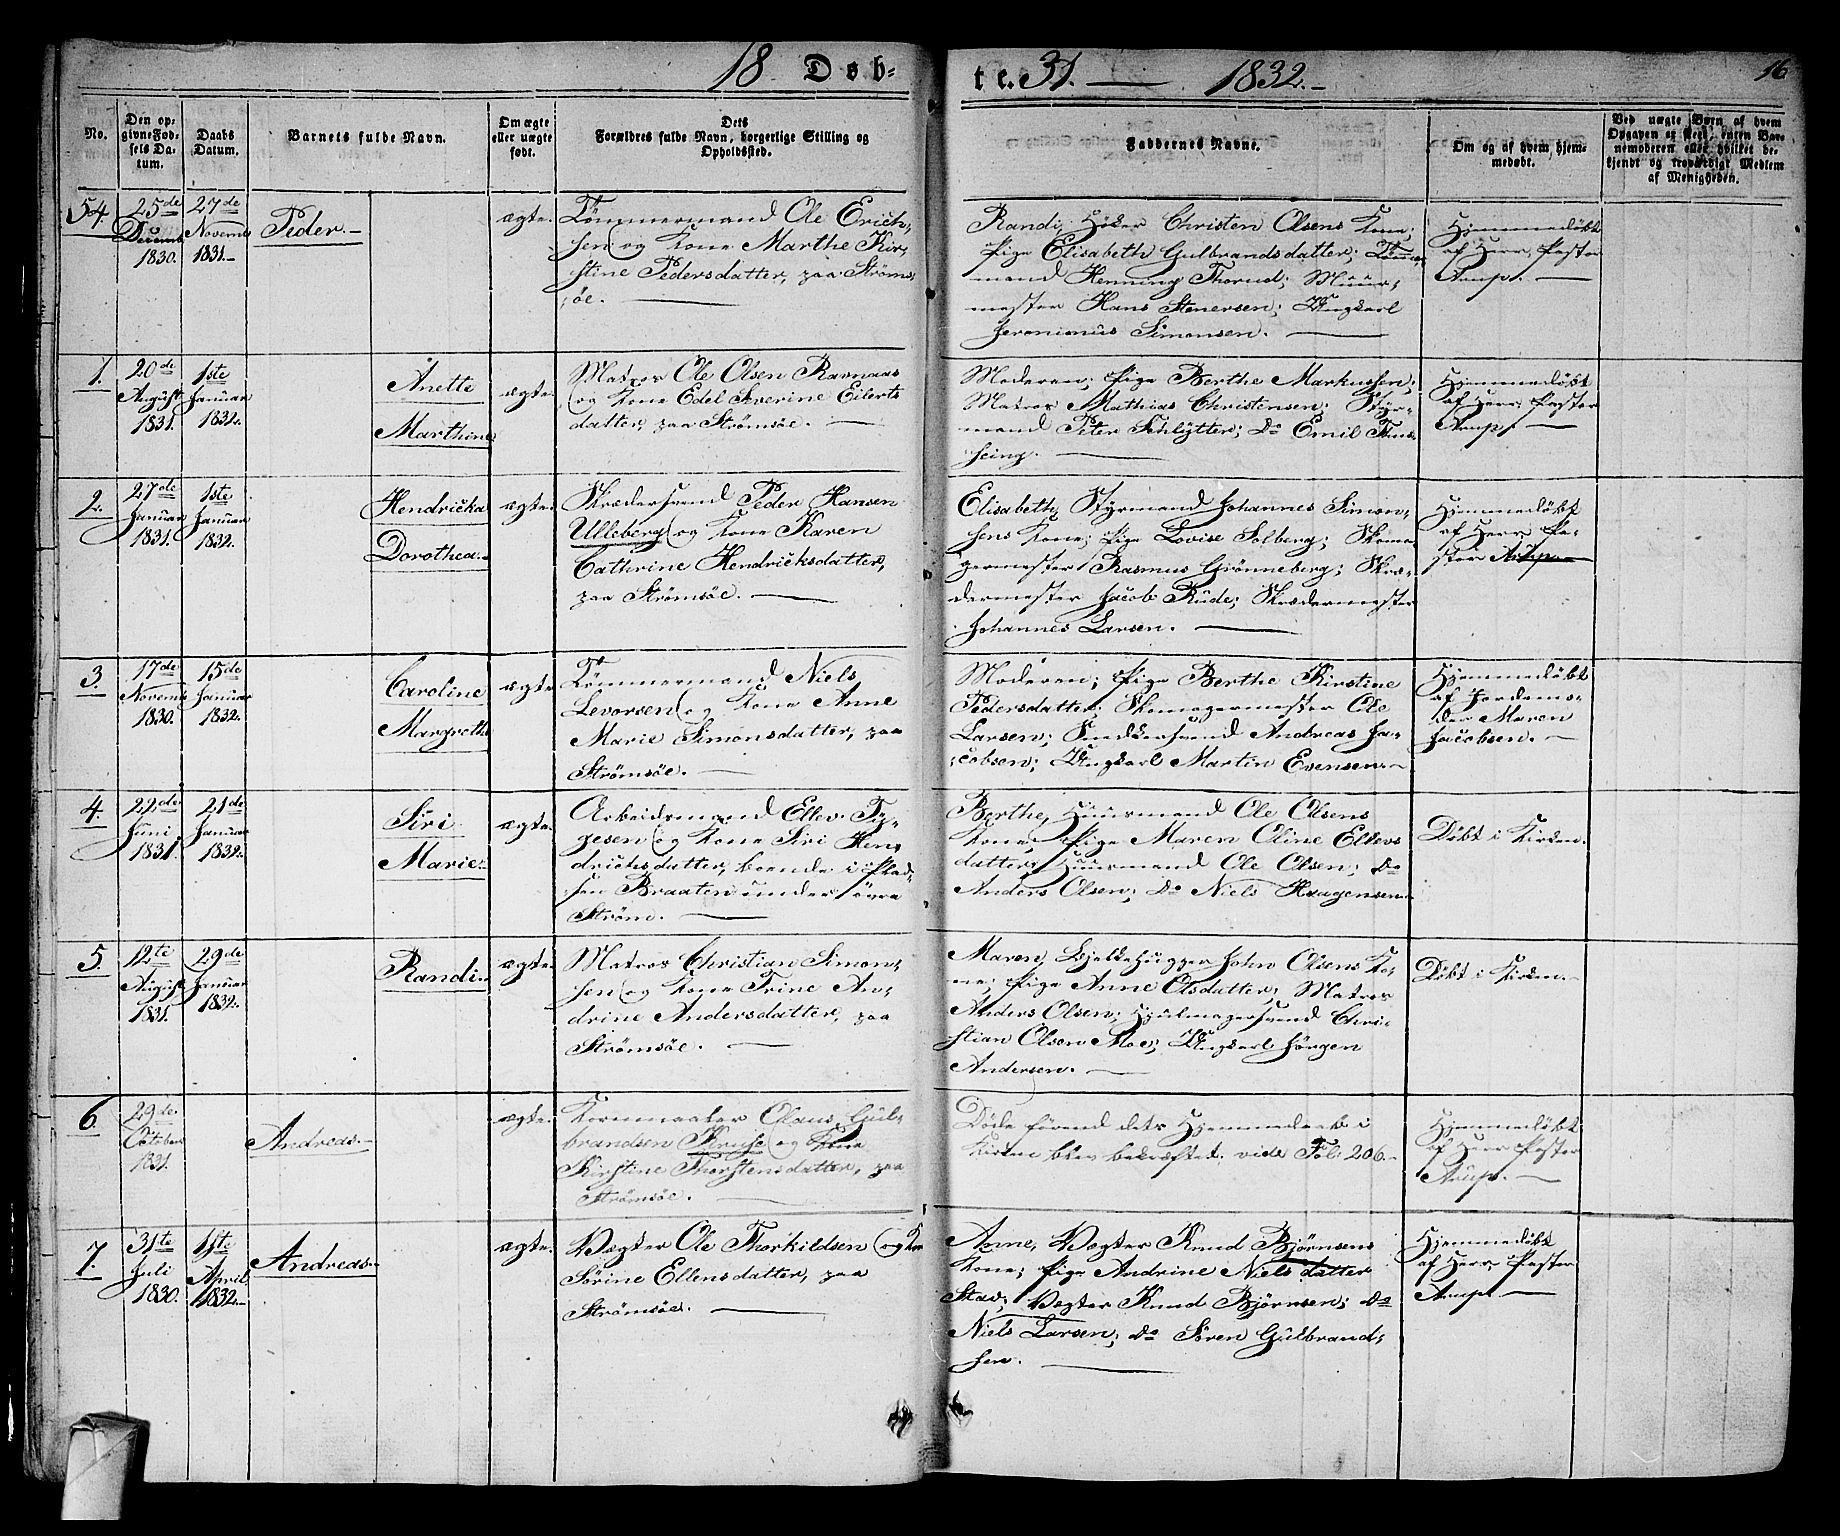 18 Døb-
te. 31. — 1832.-
16
No.
Den op-
givne Fød-
sels Da-
tum.
Daabs
Datum.
Barnets fulde Navn.
Om ægte
eller uægte
født.
Dets
Forældres fulde Navn, borgerlige Stilling og
Opholdssted.
Faddernes Navne.
Om og af hvem hjem-
medøbt.
Ved uægte Børn af hvem
Opgaven er skeet, enten Bar-
nemoderen eller hvilket be-
kjendt og troværdigt Medlem
af Menigheden.
54.
25de
Decemb.
1830.
27de
Novemb.
1831.-
Peder.-
ægte.
Tömmermand Ole Erich-
sen og Kone Marthe Kir-
stine Pedersdatter, paa Ströms-
öe. —
Randi, Høker Christen Olsens Kone;
Pige Elisabeth Gulbrandsdatter; Tömmer-
mand Henning Thorud; Muur-
mester Hans Stenersen; Ungkarl
Jeronimus Simonsen. —
Hjemmedöbt
af Herr Pastor
Arup. —
1.
20de
August
1831.
1ste
Januar
1832.
Anette
Marthine
ægte.
Matros Ole Olsen Ravnaas
og Kone Edel Severine Eilerts
datter, paa Strömsöe. —
Moderen; Pige Berthe Markussen;
Matros Mathias Christensen; Styr-
mand Peter Schlytter; Do Emil
Hjemmedöbt
af Herr Pastor
Arup. —
2.
27de
Januar
1831.
1ste
Januar
1832.
Hendricka
Dorothea.-
ægte.
Skrædersvend Peder Hansen
Ulleberg og Kone Karen
Cathrine Hendricksdatter,
paa Strömsöe. —
Elisabeth, Styrmand Johannes Simon-
sens Kone; Pige Lovise Solberg; Skoma-
germester Rasmus Grönneberg; Skræ-
dermester Jacob Rude; Skrædermester
Johannes Larsen. —
Hjemmedöbt
af Herr Pa-
stor Arup.—
3.
17de
Novemb.
1830.
15de
Januar
1832.
Caroline
Margrethe
ægte
Tömmermand Niels
Levorsen og Kone Anne
Marie Simonsdatter, paa
Strömsöe. —
Moderen; Pige Berthe Kirstine
Pedersdatter; Skomagermester Ole
Larsen; Snedkersvend Andreas Ja-
cobsen; Ungkarl Martin Evensen.-
Hjemmedöbt
af Jordemo-
der Maren
Jacobsen. -
4.
22de
Juni
1831.
21de
Januar
1832.
Siri
Marie.-
ægte.
Arbeidsmand Ellev Ty-
gesen og Kone Siri Hen-
drichsdatter, boende i Plad-
sen Braaten under övre
Ström. —
Berthe, Huusmand Ole Olsens
Kone; Pige Maren Oline Ellevs
datter; Huusmand Ole Olsen; Do
Anders Olsen; Do Niels Haagensen-
Döbt i Kirken.
5.
12te
August
1831.
29de
Januar
1832.
Randi.-
ægte.
Matros Christian Simon-
sen og Kone Trine An-
drine Andersdatter, paa
Strömsöe. —
Maren, Bjelkehugger John Olsens Ko-
ne; Pige Anne Olsdatter; Matros
Anders Olsen; Hjulmagersvend Chri-
stian Olsen Moe; Ungkarl Jörgen
Andersen. —
Döbt i Kirken.-
6.
29de
October
1831.
Andreas.-
ægte.
Kornmaaler Olaus Gul-
brandsen Kruse og Kone
Kirstine Thorstensdatter, paa
Strömsöe. —
Döde förend dets Hjemmedaab i
Kirken blev bekræftet. vide Fol: 206.-
Hjemmedöbt
af Herr Pastor
Arup. —
7.
31te
Juli
1830.
1ste
April
1832.-
Andreas.-
ægte.
Vægter Ole Thorkildsen og Kone
Sirine Ellensdatter, paa
Strömsöe. —
Anne, Vægter Knud Björnsens
Kone; Pige Andrine Nielsdatter
Stav; Vægter Knud Björnsen; Do
Niels Larsen; Do Sören Gulbrand-
sen. —
Hjemmedöbt
af Herr Pastor
Arup. —